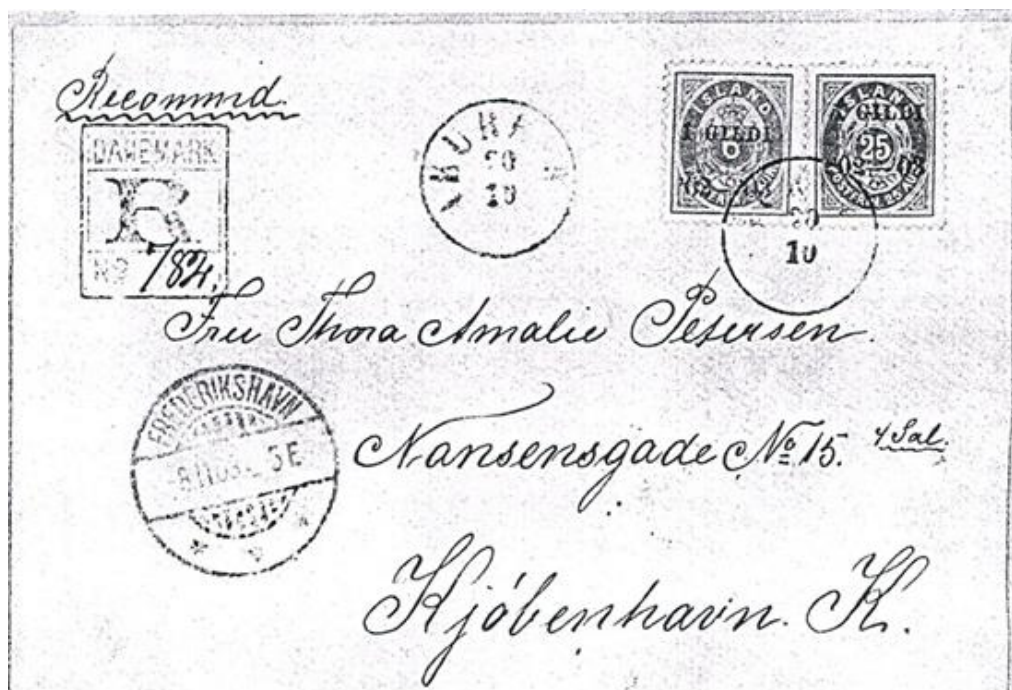 Recommd.
DANEMARK
R
No 782.
20
10
ISLAND
GILDI
6
ISLAND
GILDI
25
02 03
10
Fru Thora Amalie Petersen.
FREDERIKSHAVN
5E
Nansensgade No 15. 4 Sal.
Kjøbenhavn. K.